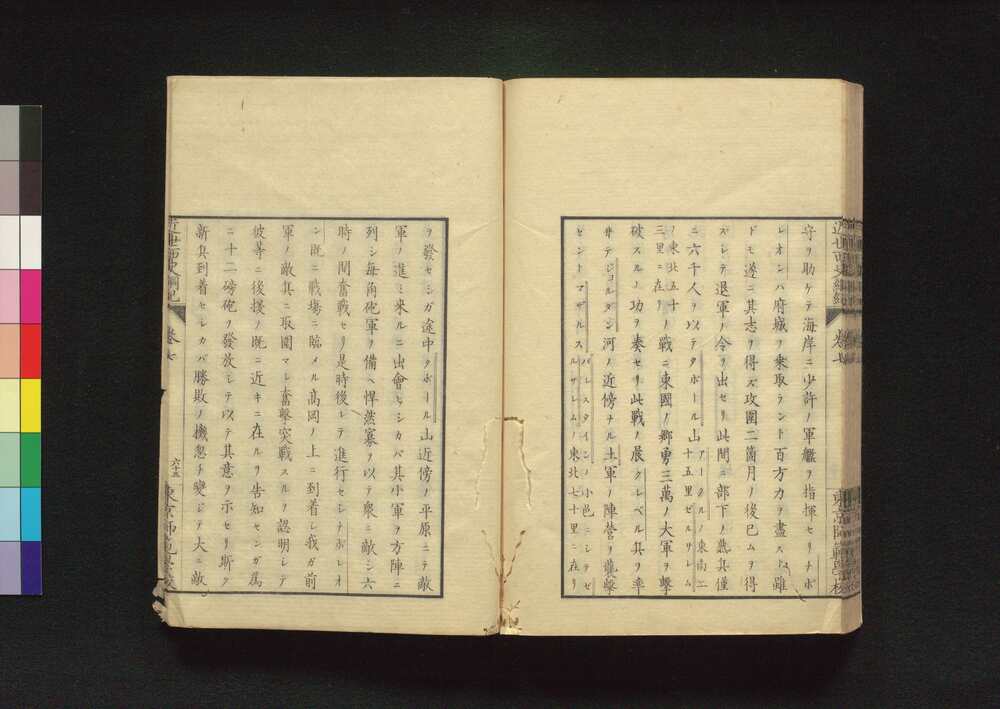 守ヲ助ケテ海岸ニ少許ノ軍艦ヲ指揮セリナポ
レオンハ府城ヲ乗取ラント百方力ヲ盡スト雖
ドモ遂ニ其志ヲ得ズ攻圍二箇月ノ後已ムヲ得
ズシテ退軍ノ令ヲ出セリ此間ニ部下ノ兵僅
ニ六千人ヲ以テタボール山アークルノ東南二十五里ゼルサレム
ノ東北五十三里ニ在リノ戰ニ東國ノ郷勇三萬ノ大軍ヲ擊
破スルノ功ヲ奏セリ此戰ノ晨クレベル兵ヲ率
井テジョルダン河ノ近傍ナル土軍ノ陣營ヲ襲擊
セントマザルスルパレスタインノ小邑ニシテゼルサレムノ東北七十里ニ在リ
ヲ發セシガ途中タボール山近傍ノ平原ニテ敵
軍ノ進ミ來ルニ出會ヒシカバ其小軍ヲ方陣ニ
列シ毎角砲軍ノ備ヘ悍然寡ヲ以テ衆ニ敵シ六
時ノ間奮戰セリ是時後レテ進行セシナポレオ
ン既ニ戰場ニ臨メル高岡ノ上ニ到着シ我ガ前
軍ノ敵兵ニ取圍マレ奮擊突戰スルヲ認明シテ
彼等ニ後援ノ既ニ近キニ在ルヲ告知センガ爲
ニ十二磅砲ヲ發放シテ以テ其意ヲ示セリ斯ク
新兵到着セシカバ勝敗ノ機忽チ變ジテ大ニ敵
近世西史綱紀
卷七
六十五
東京師範學校